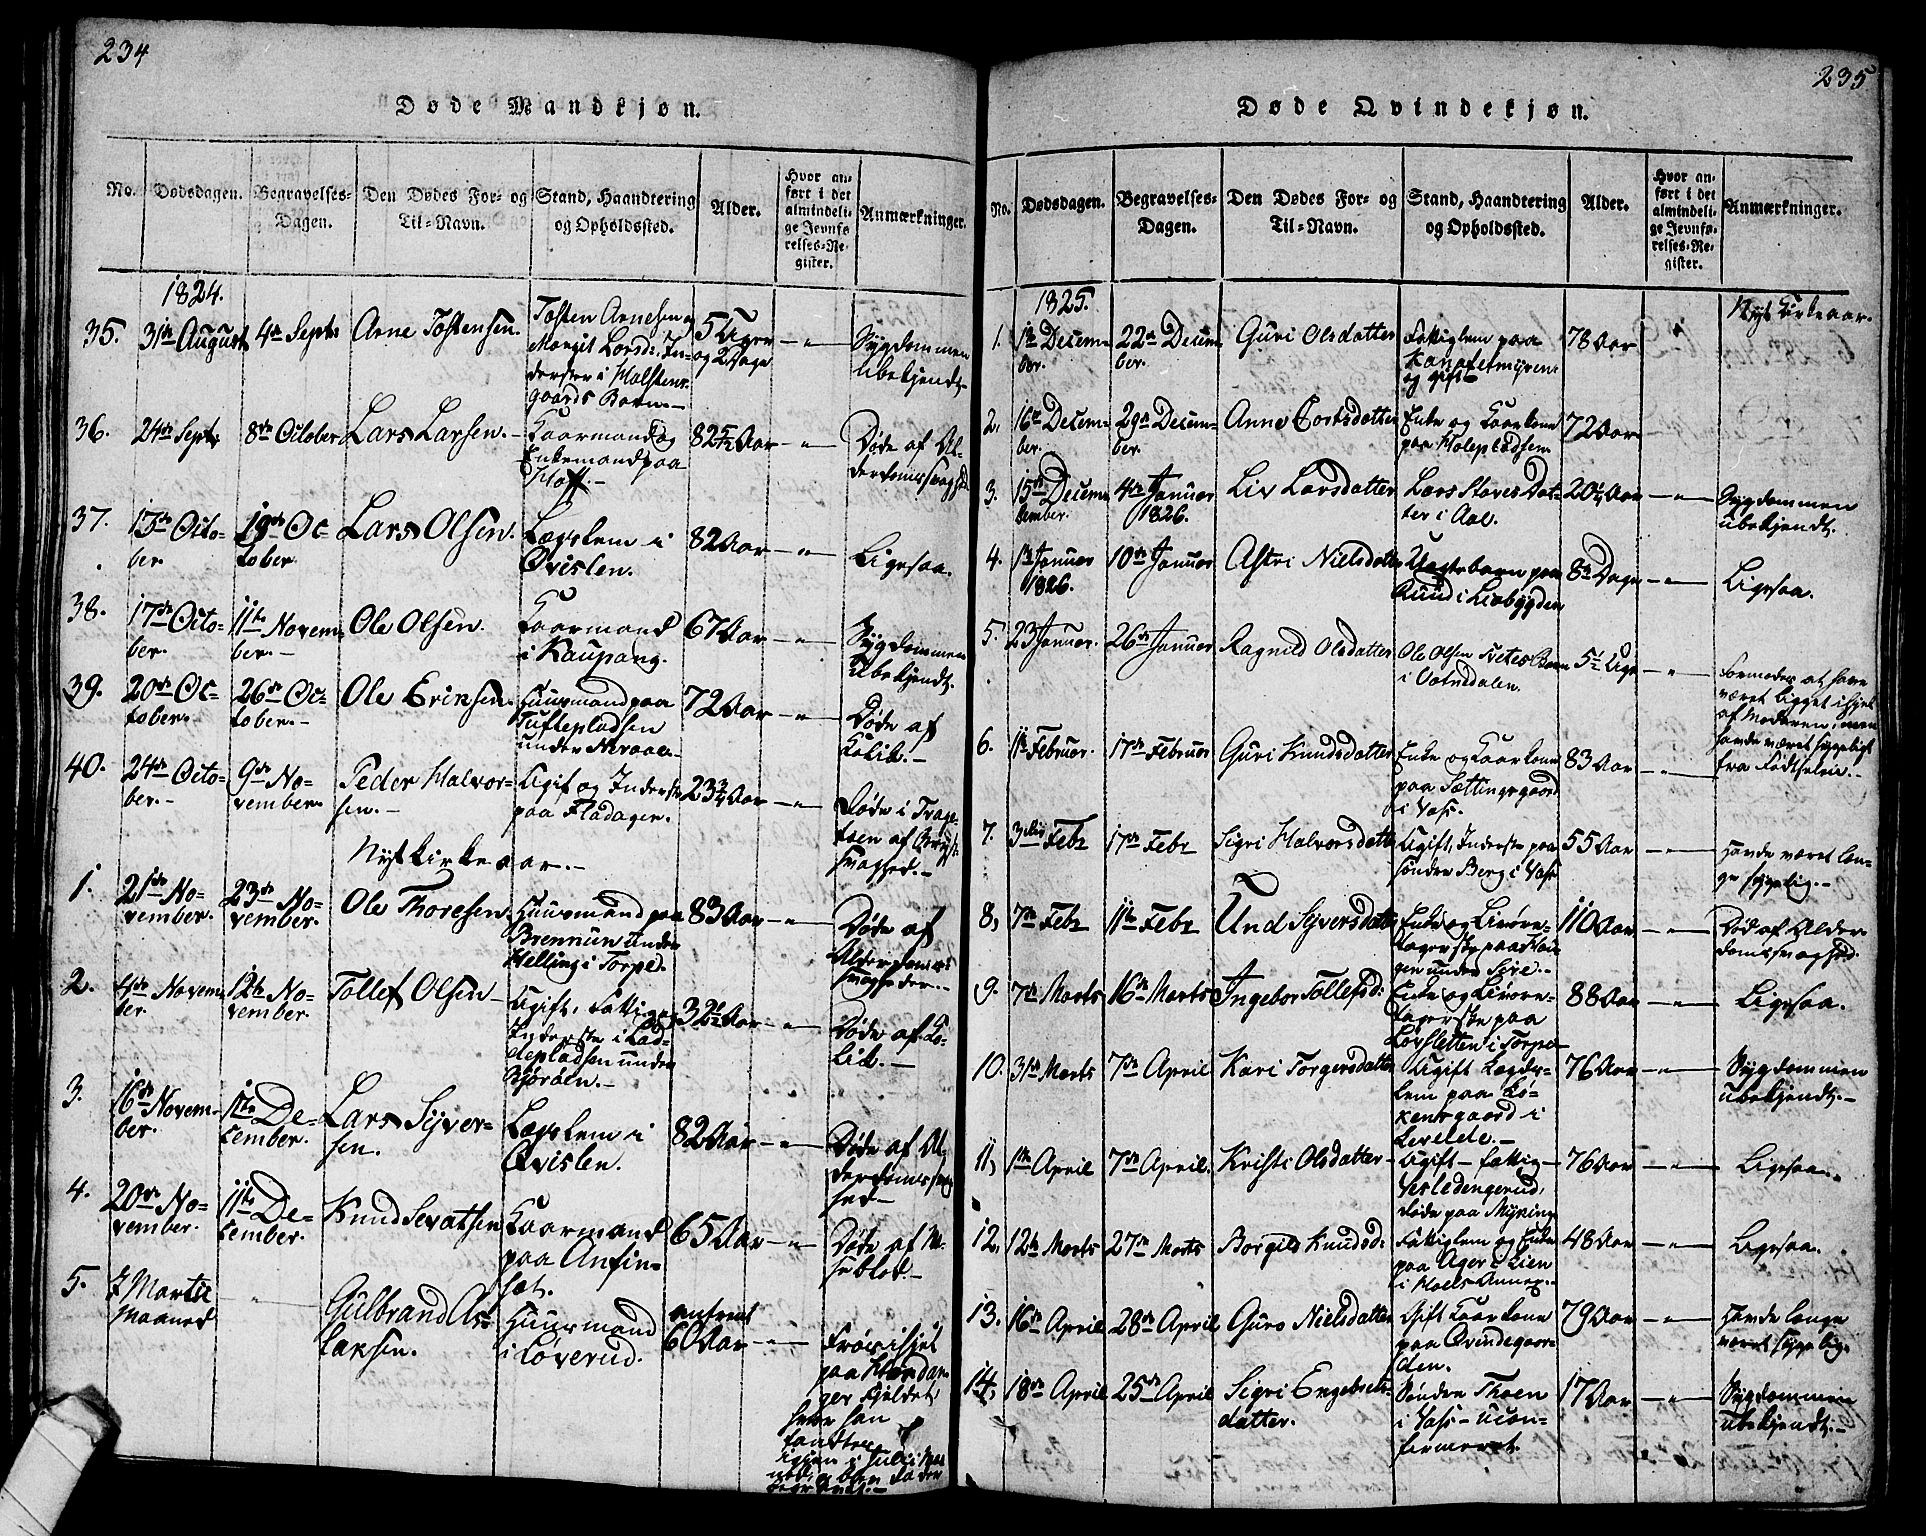 234
Døde Mandkjøn.
No.
Dødsdagen.
Begravelses-
Dagen.
Den Dødes For- og
Til-Navn.
Stand, Haandtering
og Opholdssted.
Alder.
Hvor an-
ført i det
almindeli-
ge Jevnfø-
relses-Re-
gister.
Anmærkninger.
1824.
35.
31te August
4de Septr
Arne Tostensen.
Tosten Arnesen og
Margit Larsd:, In-
derster i Halstens-
gaards Barn.-
5 Uger
og 2 Dage
- " -
Sygdommen
ubekjendt
36.
24de Septr
8de October
Lars Larsen.-
Kaarmand og
Enkemand paa
Hoff.-
82 5/12 Aar
- " -
Døde af Al-
derdomssvaghed
37.
13de Octo-
ber.
19de Oc-
tober.
Lars Olsen.
Lægslem i
Qvislen.
82 Aar
- " -
Ligesaa.
38.
17de Octo-
ber.
11te Novem-
ber.-
Ole Olsen.
Kaarmand
i Kaupang.
67 Aar
- " -
Sygdommen
ubekjendt.
39.
20de Oc-
tober.-
26de Oc-
tober.-
Ole Eriksen.
Huusmand paa
Tuftepladsen
under Nøraal-
72 Aar
- " -
Døde af
Kolik.-
40.
24de Octo-
ber.-
9de No-
vember.
Peder Halvor-
sen.-
Ugift og Inderste
paa Fladager.
23 3/4 Aar
- " -
Døde i
af Bryst-
svaghed.-
Nyt Kirkeaar.-
1.
21de No-
vember.
23de No-
vember.
Ole Thoresen
Huusmand paa
Brennun under
Helling i Torpe.
83 Aar
- " -
Døde af
Alderdoms-
svagheder.-
2.
4de Novem-
ber.
12te No-
vember.
Tollef Olsen-
Ugift, fattig,
Inderste i Lad-
depladsen under
Bjøröen.-
32 1/2 Aar
- " -
Døde af Ko-
lik.-
3.
16de Novem-
ber.
1te De-
cember.
Lars Syver-
sen.
Lægslem i
Qvislen.
82 Aar
- " -
Døde af Al-
derdomssvag-
hed-
4.
20de No-
vember.
11te De-
cember.
Knud Sevatsen
Kaarmand
paa Anfin-
set.
65 Aar
- " -
Døde af
5.
I Martii
Maaned
- " -
Gulbrand As-
laksen.
Huusmand
i Løverud.
omtrent
60 Aar
- " -
Frøs ihjel
paa Hardan-
ger Fjeldet
hvor han
fandtes
igjen i Juli

235
Døde Qvindekjøn.
No.
Dødsdagen.
Begravelses-
Dagen.
Den Dødes For- og
Til-Navn.
Stand, Haandtering
og Opholdssted.
Alder.
Hvor an-
ført i det
almindeli-
ge Jevnfø-
relses-Re-
gister.
Anmærkninger.
1825.
Nyt Kirkeaar.
1.
1te Decem-
ber.
22de Decem-
ber.
Guri Olsdatter
Fattiglem paa
og gift
78 Aar
"
2.
16de Decem-
ber.
29de Decem-
ber.
Anne Torsdatter
Enke og Kaarkone
paa Holepladsen
72 Aar
3.
15de Decem-
cember.
4de Januar
1826.
Liv Larsdatter
Lars Staves Dat-
ter i Aal.
20 1/2 Aar
- " -
Sygdommen
ubekjendt.
4.
1te Januar
1826.
10de Januar
Astri Nielsdatter
Uægtebarn paa
Ruud i Liebygden
8te Dage
- " -
Ligesaa.
5.
23 Januar.
26de Januar
Ragnild Olsdatter
Ole Olsen Tvetes Barn
i Votnedalen.
5 1/2 Uge
- " -
Formodes at have
været ligget ihjel
af Moderen, men
havde været sygeligt
fra Fødselen.-
6.
11te Februar.
17de Februar
Guri Knudsdatter
Enke og Kaarkone
paa Sættingsgaard
i Vass.
83 Aar
- " -
7.
3die Febr
17de Febr
Sigri Halvorsdatter
Ugift, Inderste paa
søndre Berg i Vass
55 Aar
- " -
Havde været læn-
ge sygelig.-
8.
7de Febr
11te Febr
Und Syversdatter
Enke og Livøre-
tagerske paa Hau-
gen under Sire.-
110 Aar
- " -
Død af Alder-
domssvaghed.
9.
7de Marts
16de Marts
Ingebor Tollefsd:
Enke og Livøre-
tagerske paa
Løvsletten i Torpe-
88 Aar
- " -
Ligesaa.
10.
31te Marts
7de April
Kari Torgersdatter
Ugift Lægds-
lem paa Lø-
kensgaard i
Leveld.-
76 Aar
- " -
Sygdommen
ubekjendt.-
11.
1te April
7de April.
Kristi Olsdatter-
Ugift- fattig-
Vesledengerud,
døde paa Myking
76 Aar
- " -
Ligesaa.
12.
12te Marts
27de Marts
Borgild Knudsd:
Fattiglem og Enke
paa Ager i Lien
i Hols Annex.-
48 Aar
- " -
Ligesaa.
13.
16de April
28de April
Guro Nielsdatter
Gift Kaarkone
paa Qvindegaar-
den.
79 Aar
- " -
Havde længe
været sygelig.
14.
18de April
25de April
Sigri Engebrets-
datter.
Søndre Thoen
i Vass- ucon-
firmeret.
17 Aar
- " -
Sygdommen
ubekjendt.-